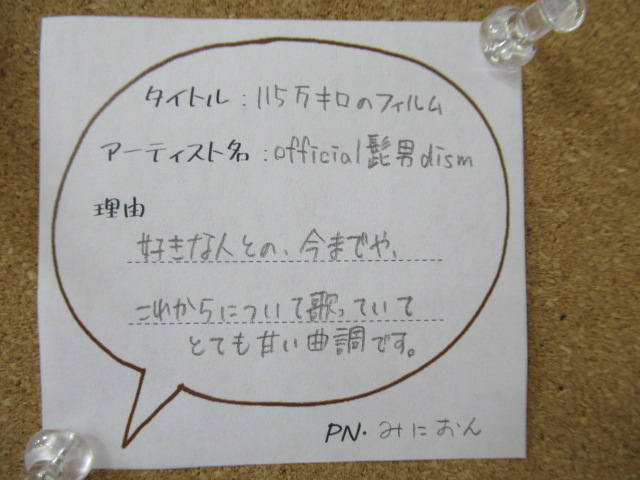 タイトル:115万キロのフィルム
アーティスト名:official髭男dism
理由
好きな人との、今までや、
これからについて歌っていて
とても甘い曲調です。
PN・みにおん